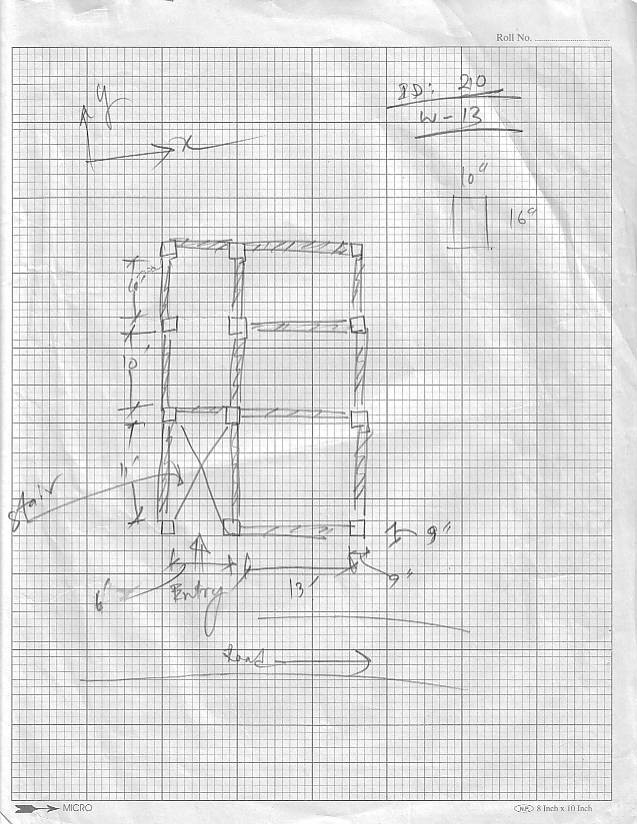 Roll No.
ID: 210
W-13
y
x
10"
16"
10'
11'
Stair
9"
9"
6'
Entry
13'
Road
MICRO
8 Inch x 10 Inch